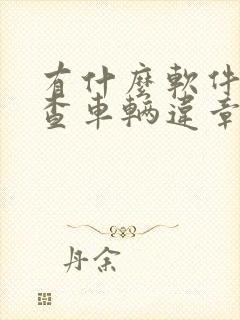 有什麼軟件
查車輛違章
丹余